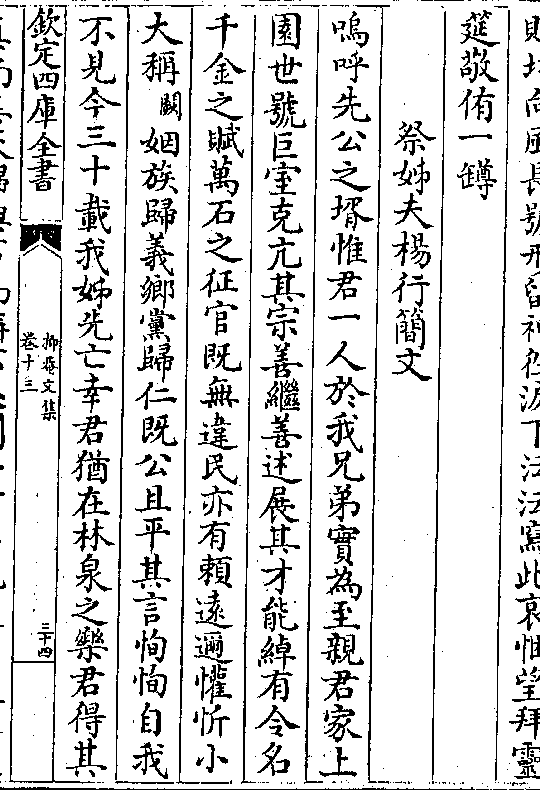 長號形留神徃淚下法法寫此哀悃望拜靈
筵敬侑一罇
祭姊夫楊行簡文
嗚呼先公之壻惟君一人於我兄弟實為至親君家上
園世號巨室克亢其宗善繼善述展其才能綽有令名
千金之賦萬石之征官既無違民亦有賴遠邇懽忻小
大稱闕姻族歸義鄉黨歸仁既公且平其言恂恂自我
不見今三十載我姊先亡幸君猶在林泉之樂君得其
欽定四庫全書
抑菴文集
卷十三
三十四